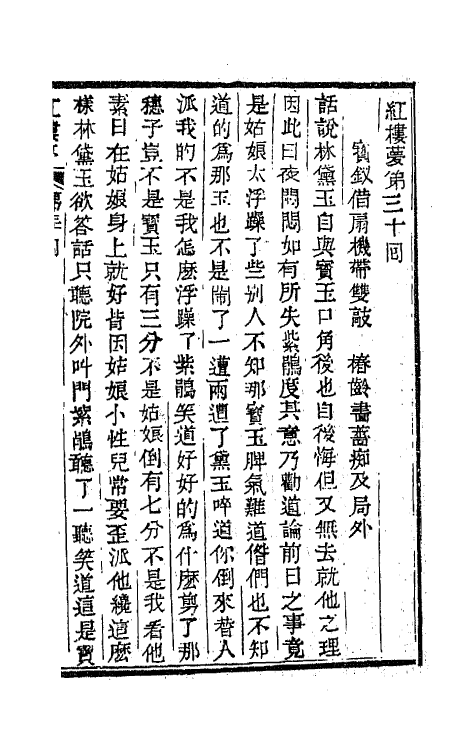 紅樓夢第三十回
寶釵借扇機帶雙敲　椿齡畫薔痴及局外
話說林黛玉自與寶玉口角後也自後悔但又無去就他之理
因此日夜悶悶如有所失紫鵑度其意乃勸道論前日之事竟
是姑娘太浮躁了些別人不知那寶玉脾氣難道偺們也不知
道的爲那玉也不是鬧了一遭兩遭了黛玉啐道你倒來替人
派我的不是我怎麽浮躁了紫鵑笑道好好的爲什麽剪了那
穗子豈不是寶玉只有三分不是姑娘倒有七分不是我看他
素日在姑娘身上就好皆因姑娘小性兒常要歪派他纔這麽
樣林黛玉欲答話只聽院外叫門紫鵑聽了一聽笑道這是寶